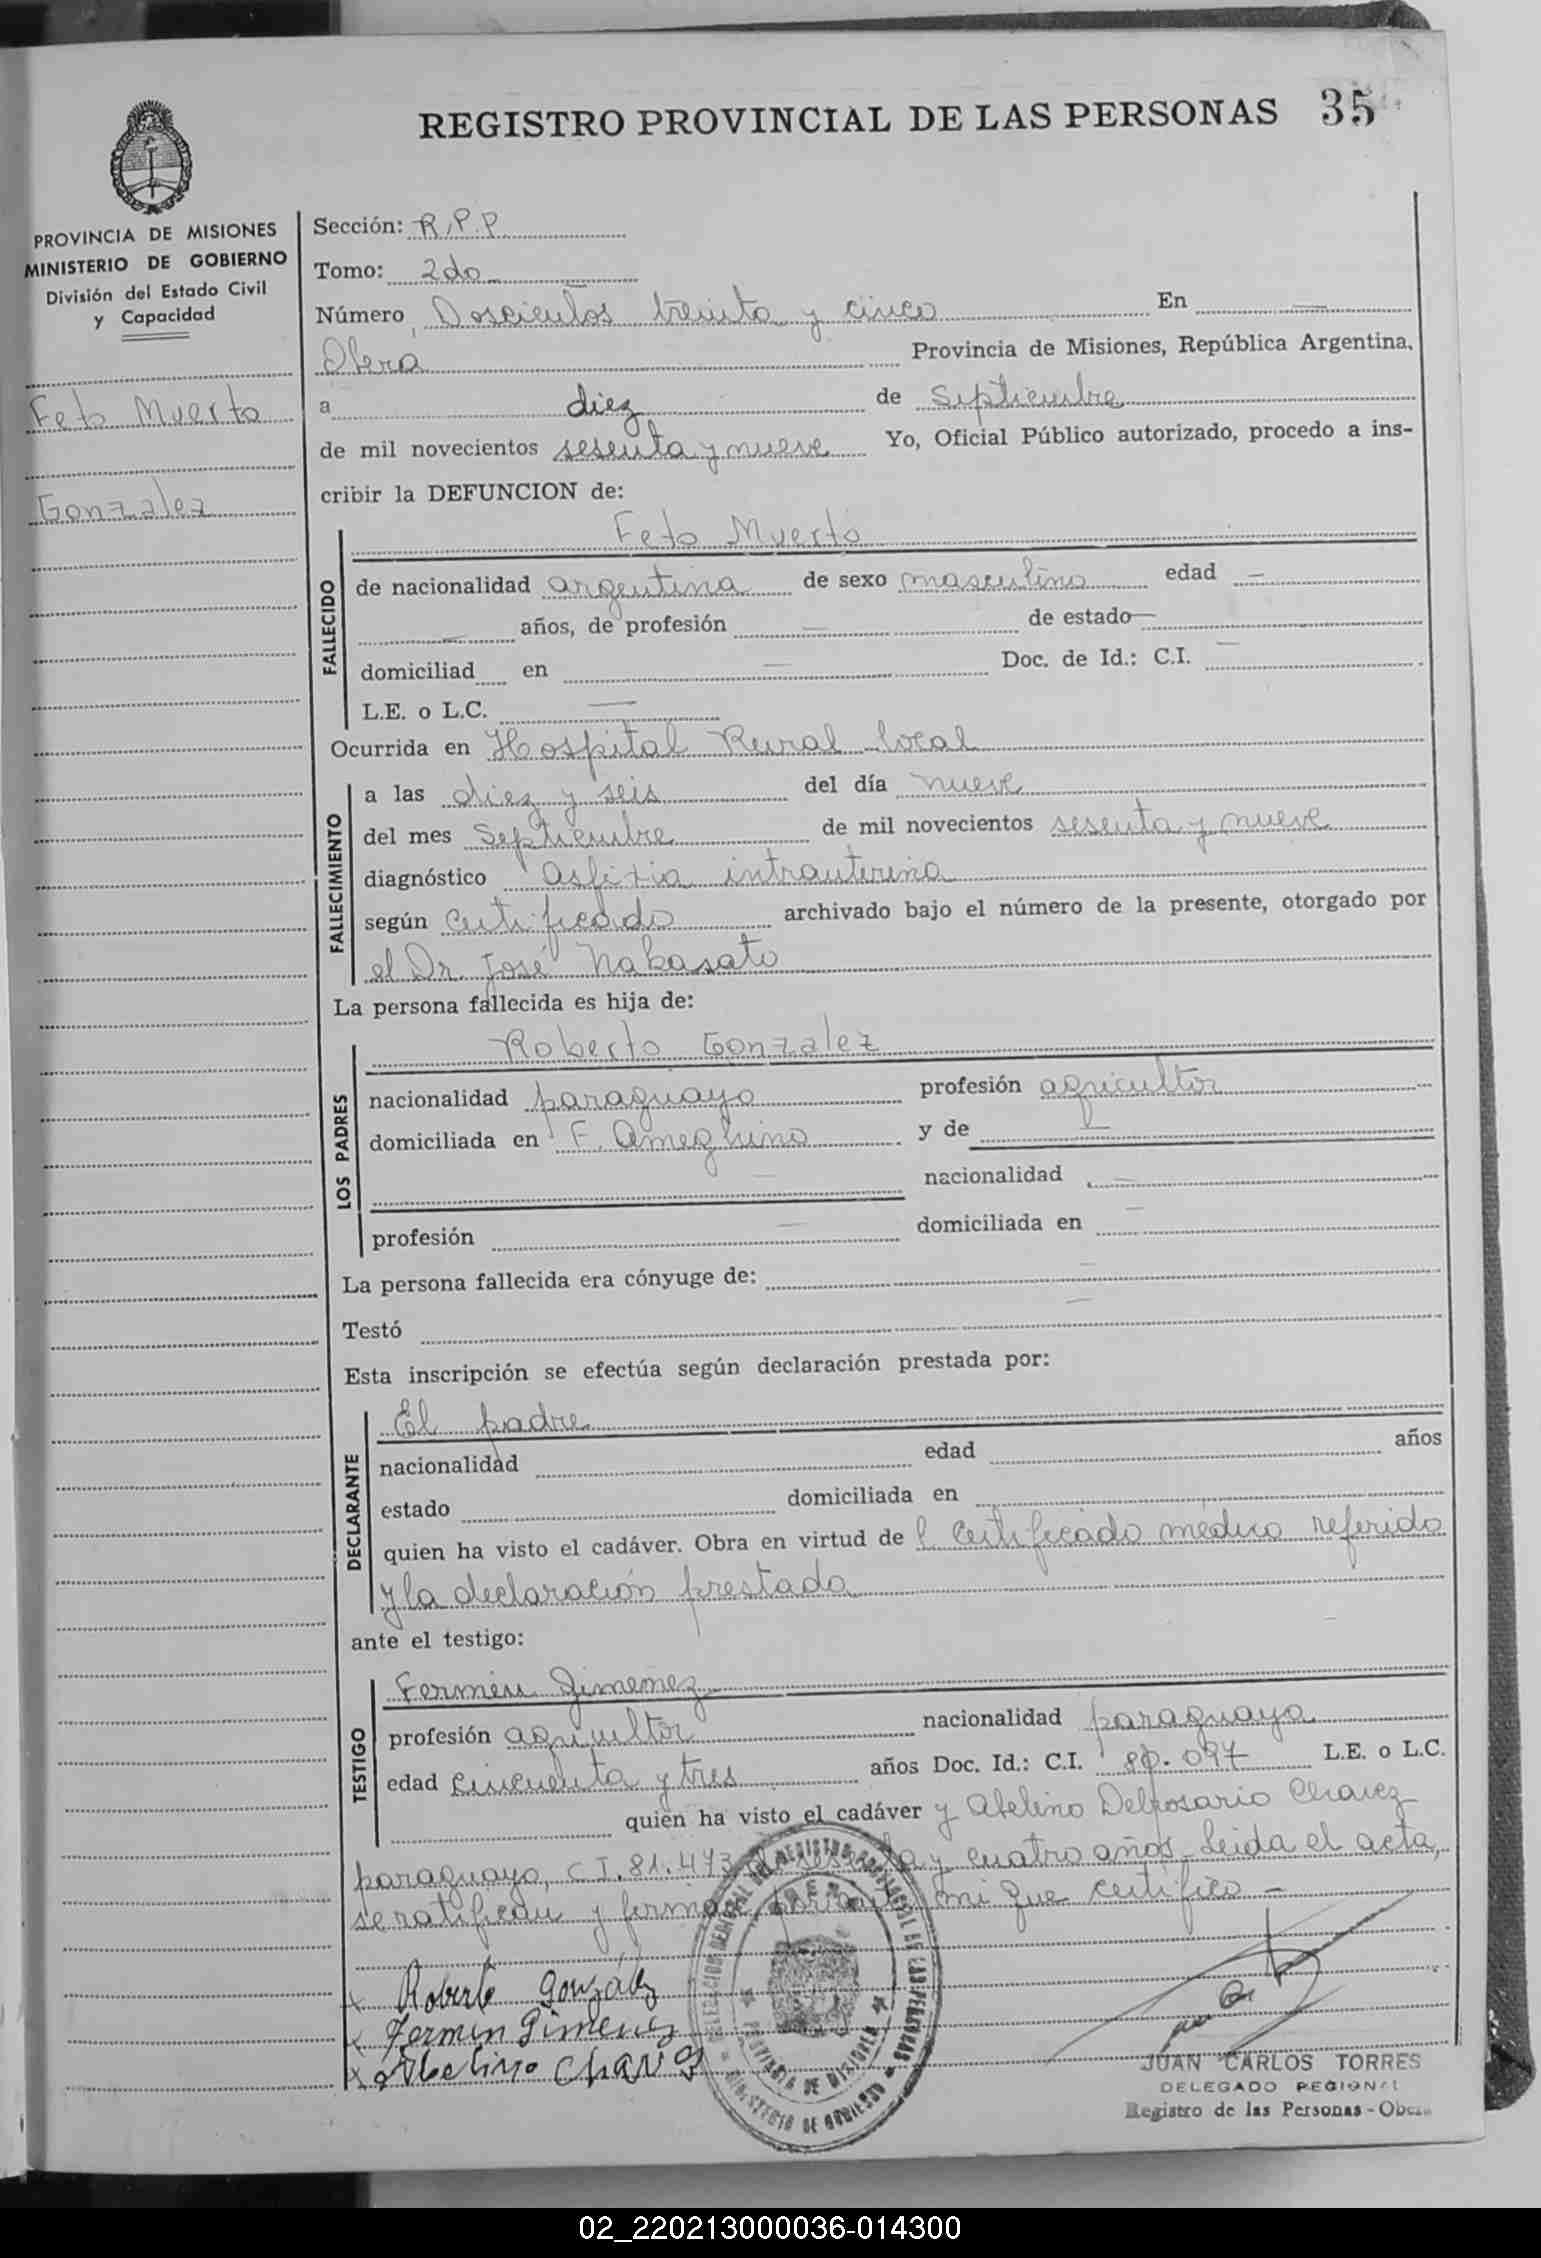 REGISTRO PROVINCIAL DE LAS PERSONAS 35
PROVINCIA DE MISIONES
MINISTERIO DE GOBIERNO
División del Estado Civil
y Capacidad
Feto Muerto
Gonzalez
Sección: R.P.P.
Tomo: 2do
Número Doscientos treinta y cinco En —
Obera Provincia de Misiones, República Argentina,
a diez de Septiembre
de mil novecientos sesenta y nueve Yo, Oficial Público autorizado, procedo a ins-
cribir la DEFUNCION de:
Feto Muerto
FALLECIDO
de nacionalidad argentina de sexo masculino edad —
— años, de profesión — de estado —
domiciliad en — Doc. de Id.: C.I. —
L.E. o L.C. —
Ocurrida en Hospital Rural local
FALLECIMIENTO
a las diez y seis del día nueve
del mes Septiembre de mil novecientos sesenta y nueve
diagnóstico Asfixia intrauterina
según certificado archivado bajo el número de la presente, otorgado por
el Dr. José Nakasato
La persona fallecida es hija de:
Roberto Gonzalez
LOS PADRES
nacionalidad paraguayo profesión agricultor
domiciliada en F. Ameghino y de —
nacionalidad —
profesión — domiciliada en —
La persona fallecida era cónyuge de: —
Testó —
Esta inscripción se efectúa según declaración prestada por:
El padre
DECLARANTE
nacionalidad edad años
estado domiciliada en
quien ha visto el cadáver. Obra en virtud de l certificado médico referido
y la declaración prestada
ante el testigo:
Fermín Gimenez
TESTIGO
profesión agricultor nacionalidad paraguaya
edad cincuenta y tres años Doc. Id.: C.I. L.E. o L.C.
quien ha visto el cadáver y Abelino Delrosario Chavez
paraguayo, C.I. 81.473 de sesenta y cuatro años. Leida el acta,
se ratifican y firman por ante mi que certifico –
x Roberto González
x Fermin Gimenez
x Abelino Chavez
DELEGACION GENERAL DEL REGISTRO PROVINCIAL DE LAS PERSONAS
PROVINCIA DE MISIONES
MINISTERIO DE GOBIERNO
JUAN CARLOS TORRES
DELEGADO REGIONAL
Registro de las Personas - Obera
02_220213000036-014300